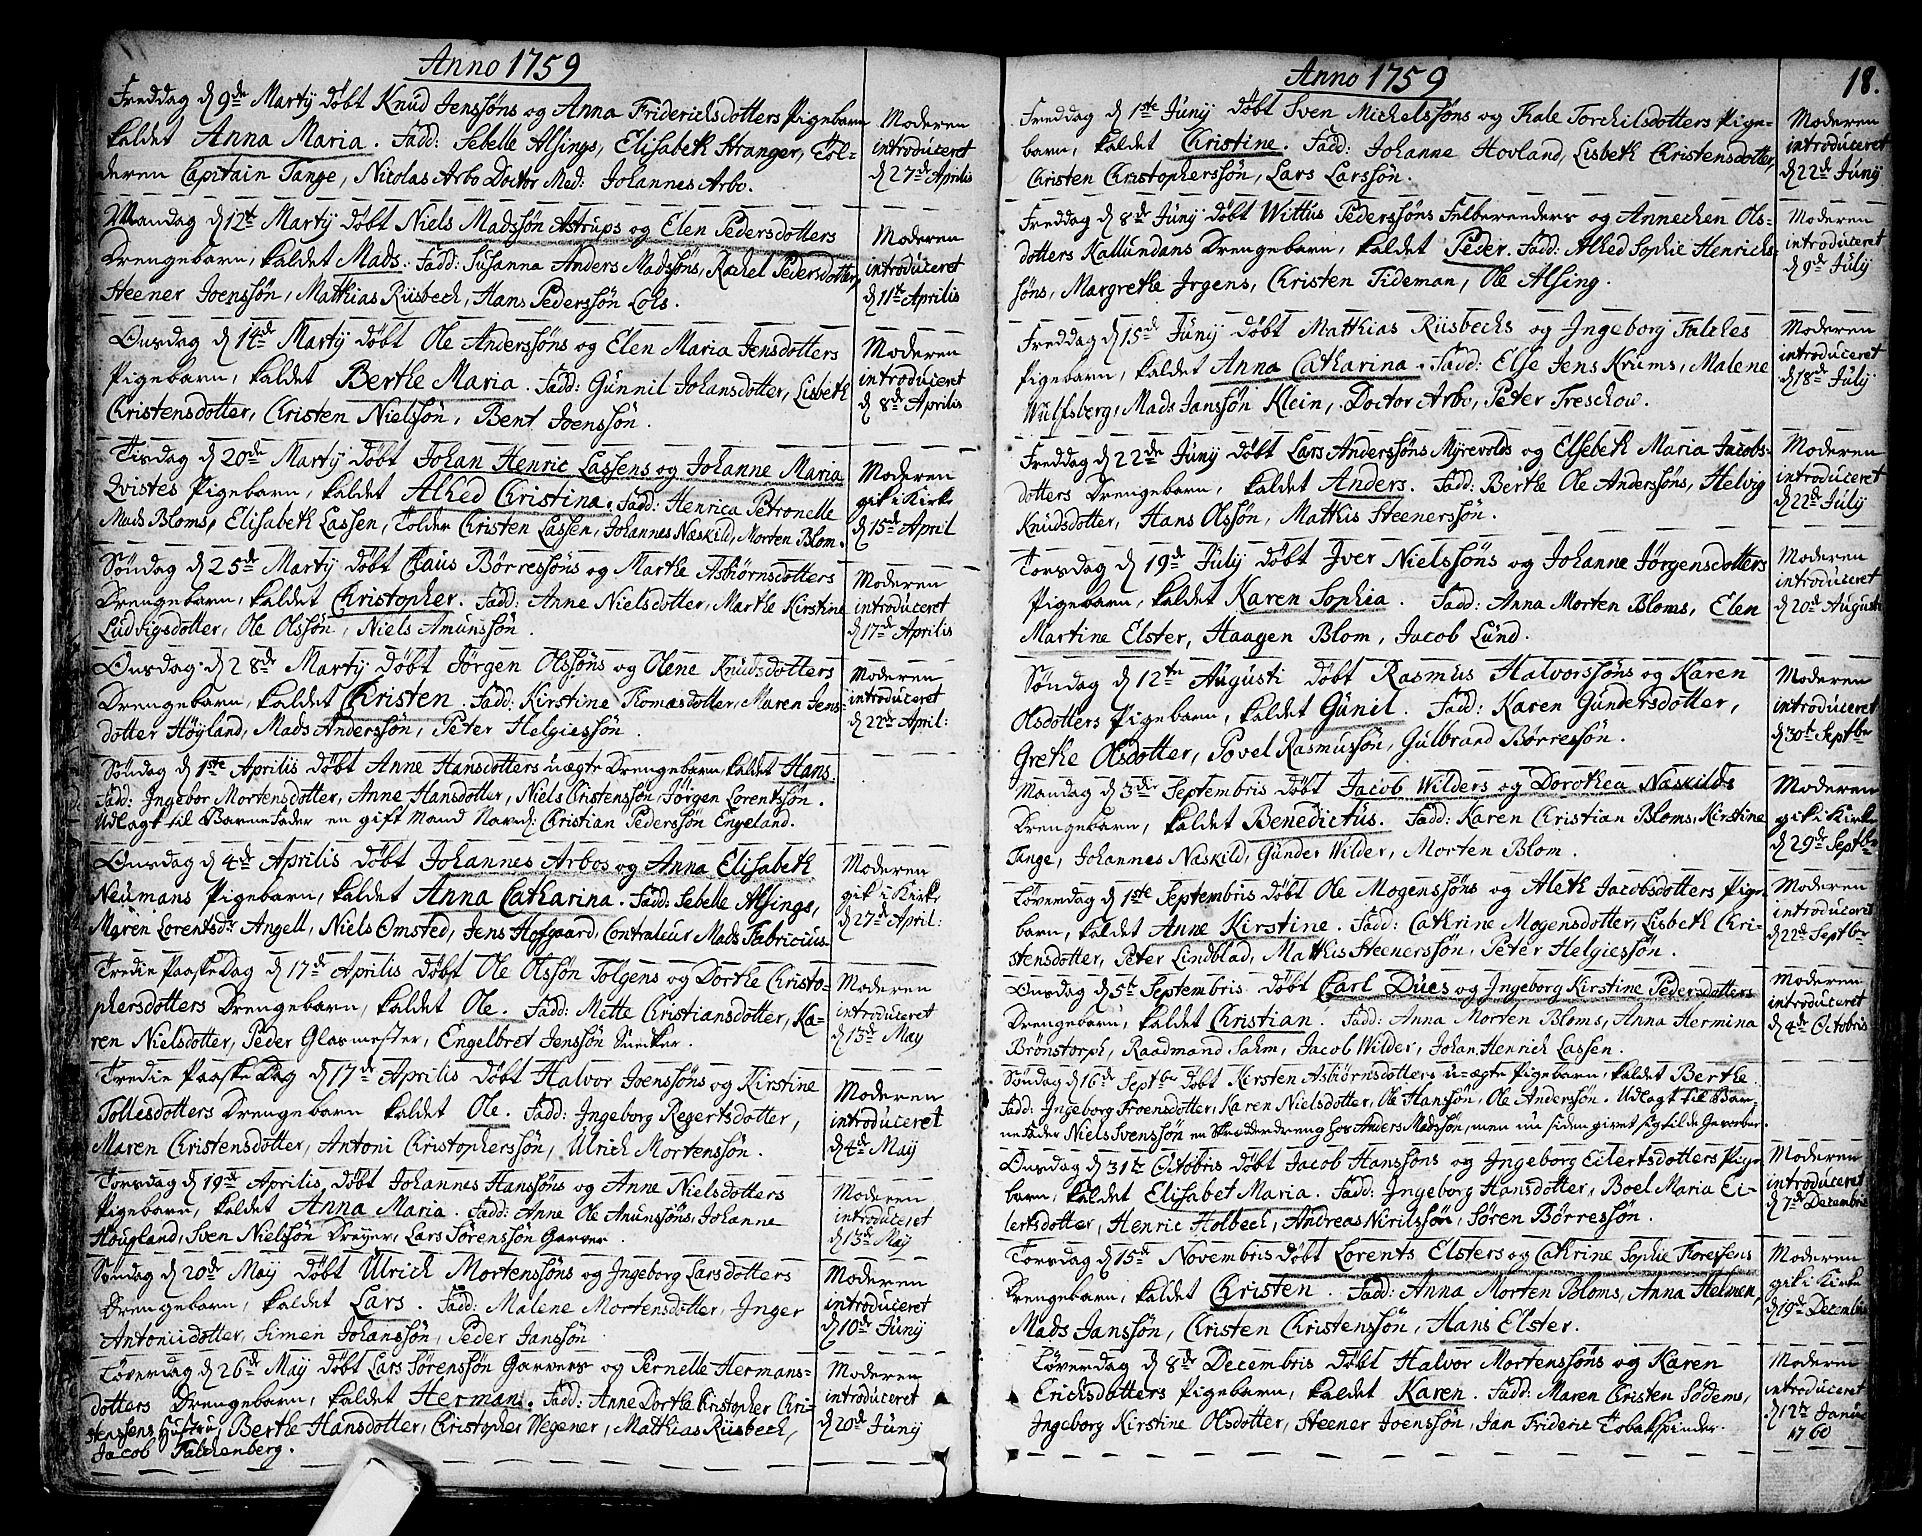 Anno 1759
Freddag d 9de Martÿ døbt Knud Jenssøns og Anna Friderichsdotters Pigebarn
kaldet Anna Maria. Fadd: Sebelle Alsings, Elisabeth Stranger, Tol-
deren Capitain Tange, Nicolas Arbo Doctor Med: Johannes Arbo.
Moderen
introduceret
d 27de Aprilis
Mandag d 12te Martÿ døbt Niels Madssøn Astrups og Elen Pedersdotters
Drengebarn, kaldet Mads. Fadd: Susanna Anders Madssøns, Rachel Pedersdotter,
Steener Joenssøn, Matthias Rüsbech, Hans Pederssøn Lohs.
Moderen
introduceret
d 11te Aprilis
Onsdag d 14de Martÿ døbt Ole Anderssøns og Elen Maria Jensdotters
Pigebarn, kaldet Berthe Maria. Fadd: Gunnil Johansdotter, Lisbeth
Christensdotter, Christen Nielssøn, Bent Joenssøn.
Moderen
introduceret
d 8de Aprilis
Tisdag d 20de Martÿ døbt Johan Henric Lassens og Johanne Maria
Qvistes Pigebarn, kaldet Alhed Christina. Fadd: Henrica Petronelle
Mads Bloms, Elisabeth Lassen, Tolder Christen Lassen, Johannes Næskild, Morten Blom.
Moderen
gik i Kirke
d 15de April
Søndag d 25de Martÿ døbt Claus Børressøns og Marthe Asbiørnsdotters
Drengebarn, kaldet Christopher. Fadd: Anne Nielsdotter, Marthe Kirstine
Ludvigsdotter, Ole Olssøn, Niels Amunssøn.
Moderen
introduceret
d 17de Aprilis
Onsdag d 28de Martÿ døbt Jørgen Olssøns og Olene Knudsdotters
Drengebarn, kaldet Christen. Fadd: Kirstine Thomasdotter, Maren Jens-
dotter Høyland, Mads Anderssøn, Peter Helgiessøn.
Moderen
introduceret
d 22de April:
Søndag d 1ste Aprilis døbt Anne Hansdotters uægte Drengebarn, kaldet Hans.
Fadd: Ingebor Mortensdotter, Anne Hansdotter, Niels Cristenssøn, Jørgen Lorentssøn.
Udlagt til Barnefader en gift Mand Navnl: Christian Pederssøn Engeland.
Onsdag d 4de Aprilis døbt Johannes Arbos og Anna Elisabeth
Neumans Pigebarn, kaldet Anna Catharina. Fadd: Sebelle Alsings,
Maren Lorentsdr Angell, Niels Omsted, Jens Hofgaard, Contraleur Mads Fabricius
Moderen
gik i Kirke
d 27de April:
Tredie Paaske Dag d 17de Aprilis døbt Ole Olssøn Tolgens og Dorthe Christo-
phersdotters Drengebarn, kaldet Ole. Fadd: Mette Christiansdotter, Ka-
ren Nielsdotter, Peder Glasmester, Engelbret Jenssøn Snecker.
Moderen
introduceret
d 13de May
Tredie Paaske Dag d 17de Aprilis døbt Halvor Joenssøns og Kirstine
Tollesdotters Drengebarn kaldet Ole. Fadd: Ingeborg Regertsdotter,
Maren Christensdotter, Antoni Christopherssøn, Ulrich Mortenssøn.
Moderen
introduceret
d 4de Maÿ
Torsdag d 19de Aprilis døbt Johannes Hanssøns og Anne Nielsdotters
Pigebarn, kaldet Anna Maria. Fadd: Anne Ole Amunssøns, Johanne
Hougland, Sven Nielssøn Dreyer, Lars Sørenssøn Garver.
Moderen
introduceret
d 13de Maÿ
Søndag d 20de Maÿ døbt Ulrich Mortenssøns og Ingeborg Larsdotters
Drengebarn, kaldet Lars. Fadd: Malene Mortensdotter, Inger
Antonidotter, Simen Johanssøn, Peder Janssøn
Moderen
introduceret
d 10de Junÿ
Løverdag d 26de Maÿ døbt Lars Sørenssøn Garvers og Pernelle Hermans-
dotters Drengebarn, kaldet Herman. Fadd: Anne Dorthe Christopher Chri-
stensens Hustru, Berthe Hansdotter, Christopher Wegener, Matthias Rüsbech,
Jacob Falchenberg.
Moderen
introduceret
d 20de Junÿ
Anno 1759
18.
Freddag d 1ste Junÿ døbt Sven Michelssøns og Kale Torchilsdotters Pige-
barn, kaldet Christine. Fadd: Johanne Hovland, Lisbeth Christensdotter,
Christen Christopherssøn, Lars Larssøn.
Moderen
introduceret
d 22de Junÿ
Freddag d 8de Junÿ døbt Wittus Pederssøns Felbereeders og Annechen Ols-
dotters Kallundans Drengebarn, kaldet Peder. Fadd: Alhed Sophie Henrichs-
søns, Margrethe Jrgens, Christen Tideman, Ole Alsing.
Moderen
introduceret
d 9de Julÿ
Freddag d 15de Junÿ døbt Matthias Rüsbechs og Ingeborg Falches
Pigebarn, kaldet Anna Catharina. Fadd: Else Jens Krums, Malene
Wulfsberg, Mads Janssøn Klein, Doctor Arbo, Peter Treschow.
Moderen
introduceret
d 18de Julÿ
Freddag d 22de Junÿ døbt Lars Anderssøns Myrevolds og Elsebeth Maria Jacobs-
dotters Drengebarn, kaldet Anders. Fadd: Berthe Ole Anderssøns, Helvig
Knudsdotter, Hans Olssøn, Matthis Steenerssøn.
Moderen
introduceret
d 22de Julÿ
Torsdag d 19de Julÿ døbt Jver Nielssøns og Johanne Jørgensdotters
Pigebarn, kaldet Karen Sophia. Fadd: Anna Morten Bloms, Elen
Martine Elster, Haagen Blom, Jacob Lund.
Moderen
introduceret
d 20de Augusti
Søndag d 12te Augusti døbt Rasmus Halvorssøns og Karen
Olsdotters Pigebarn, kaldet Gunil. Fadd: Karen Gundersdotter,
Grethe Olsdotter, Povel Rasmussøn, Gulbrand Børressøn.
Moderen
introduceret
d 30te Septbr
Mandag d 3die Septembris døbt Jacob Wilders og Dorothea Næskilds
Drengebarn, kaldet Benedictus. Fadd: Karen Christian Bloms, Kirstine
Tange, Johannes Næskild, Gunder Wilder, Morten Blom.
Moderen
gik i Kirke
d 29de Septbr
Løverdag d 1ste Septembris døbt Ole Mogenssøns og Aleth Jacobsdotters Pige-
barn, kaldet Anne Kirstine. Fadd: Cathrine Mogensdotter, Lisbeth Chri-
stensdotter, Peter Lindblad, Matthis Steenerssøn, Peter Helgiessøn.
Moderen
introduceret
d 22de Septbr
Onsdag d 5te Septembris døbt Carl Dües og Ingeborg Kirstine Pedersdotters
Drengebarn, kaldet Christian. Fadd: Anna Morten Bloms, Anna Hermina
Brønstorph, Raadmand Sahm, Jacob Wilder, Johan Henrich Lassen.
Moderen
introduceret
d 4de Octobris
Søndag d 16de Septbr døbt Kirsten Asbiørnsdotters u-ægte Pigebarn, kaldet Berthe.
Fadd: Ingeborg Troensdotter, Karen Nielsdotter, Ole Hanssøn, Ole Anderssøn. Udlagt til Bar-
nefader Niels Svenssøn en Skrædderdreng hos Anders Madssøn, men nu siden givet sig til de Gevorbne.
Onsdag d 31te Octobris døbt Jacob Hanssøns og Ingeborg Eilertsdotters Pige-
barn, kaldet Elisabet Maria. Fadd: Ingeborg Hansdotter, Boel Maria Ei-
lertsdotter, Henric Holbech, Andreas Nirilssøn, Søren Børressøn.
Moderen
introduceret
d 7de Decembris
Torsdag d 15de Novembris døbt Lorents Elsters og Cathrine Sophie Floressens
Drengebarn, kaldet Christen. Fadd: Anna Morten Bloms, Anna Helmen,
Mads Janssøn, Christen Christenssøn, Hans Elster.
Moderen
gik i Kirke
d 19de Decembris
Løverdag d 8de Decembris døbt Halvor Mortenssøns og Karen
Ericksdotters Pigebarn, kaldet Karen. Fadd: Maren Christen Sødems,
Ingeborg Kirstine Olsdotter, Steener Joenssøn, Jan Frideric Tobakspinder.
Moderen
introduceret
d 12te Janu
1760